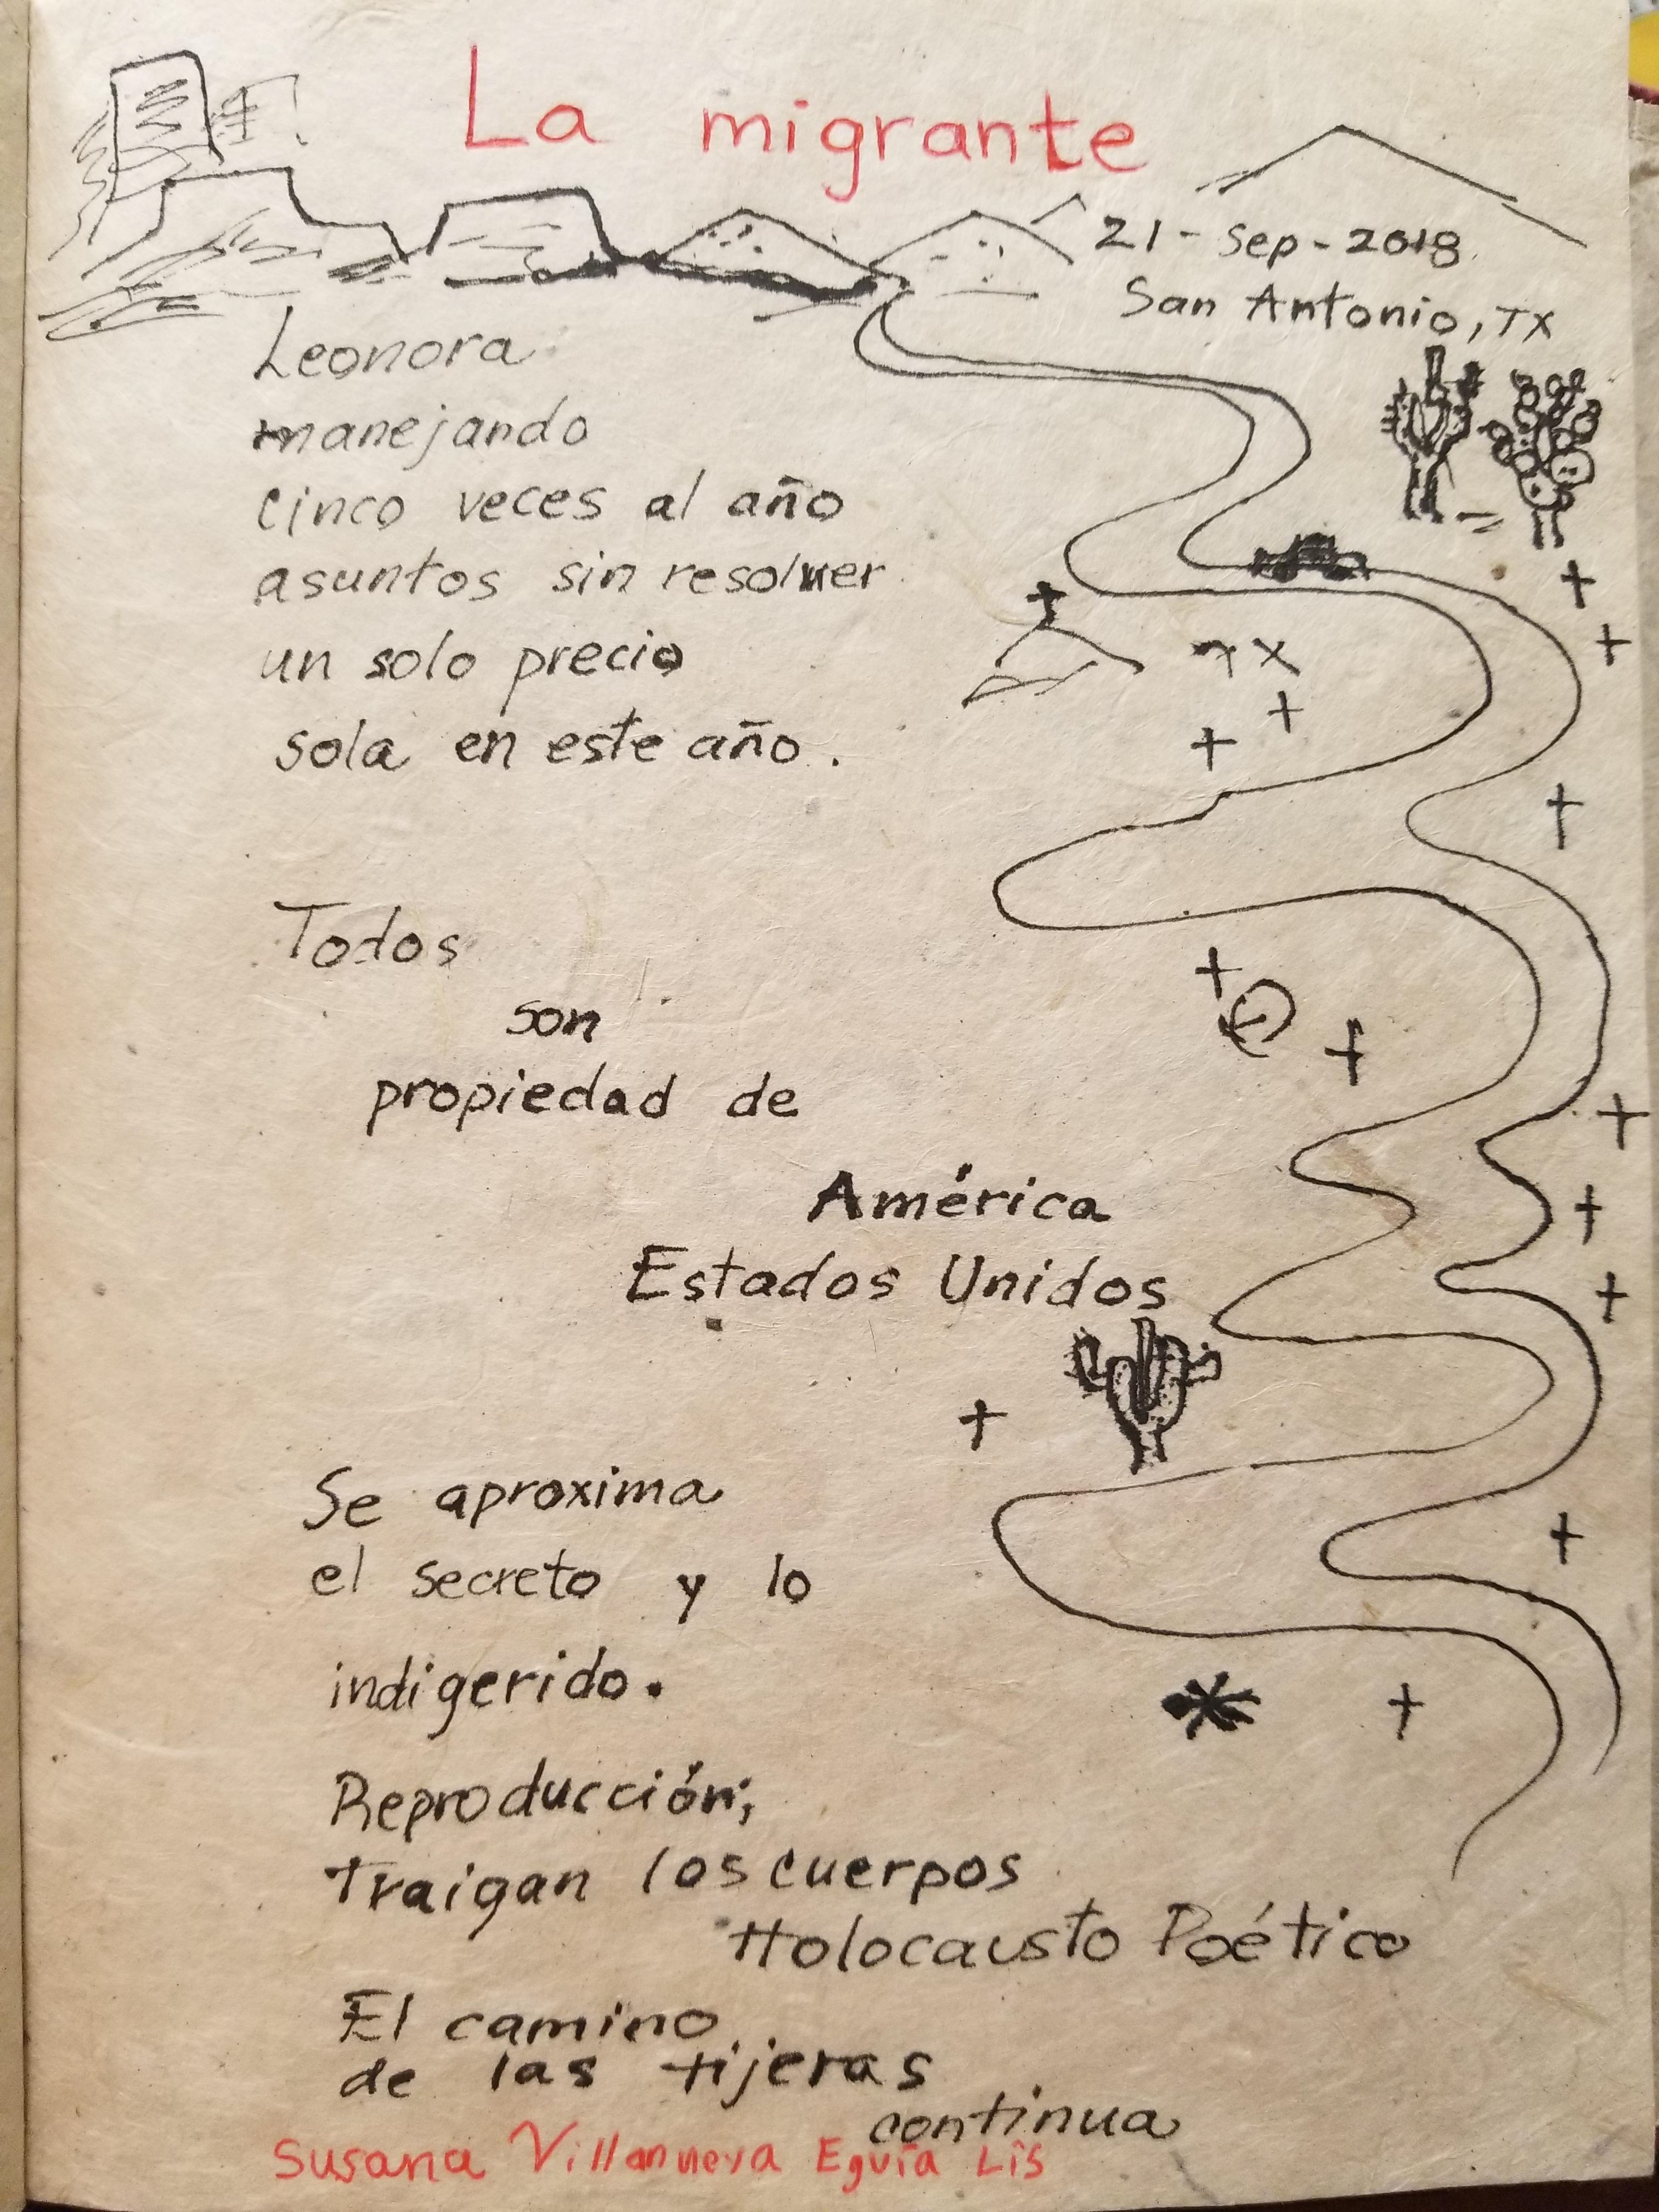 La migrante
21-Sep-2018
San Antonio, TX
Leonora
manejando
cinco veces al año
asuntos sin resolver
un solo precio
sola en este año.
Todos
son
propiedad de
América
Estados Unidos
Se aproxima
el secreto y lo
indigerido.
Reproducción;
Traigan los cuerpos
Holocausto Poético
El camino
de las tijeras
continua
Susana Villanueva Eguía Lis